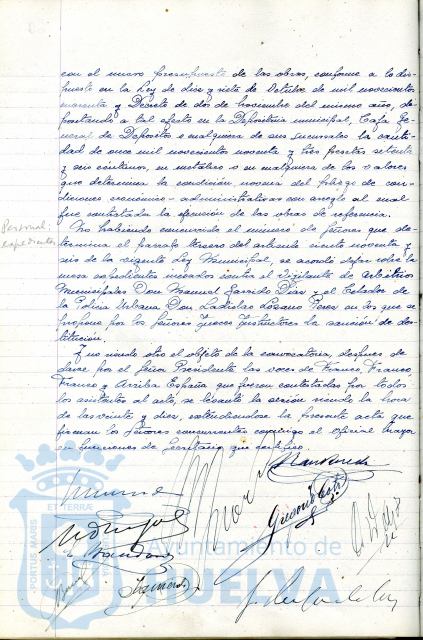 con el nuevo presupuesto de las obras, conforme a lo dis-
puesto en la Ley de diez y siete de Octubre de mil novecientos
cuarenta y Decreto de dos de Noviembre del mismo año, de-
positando a tal efecto en la Depositaria municipal, Caja Ge-
neral de Depósitos o cualquiera de sus sucursales la canti-
dad de once mil novecientos noventa y tres pesetas setenta
y seis céntimos, en metálico o en cualquiera de los valores
que determina la condición novena del pliego de con-
diciones económico-administrativas con arreglo al cual
fué contratada la ejecución de las obras de referencia.
Personal:
expedientes
No habiendo concurrido el número de Señores que de-
termina el párrafo tercero del artículo ciento noventa y
seis de la vigente Ley Municipal, se acordó dejar sobre la
mesa expedientes incoados contra el Vigilante de Arbitrios
Municipales Don Manuel Garrido Díaz y el Celador de
la Policía Urbana Don Ladislao Lozano Perez en los que se
propone por los Señores Jueces Instructores la sanción de des-
titución.
Y no siendo otro el objeto de la convocatoria, después de
darse por el Señor Presidente las voces de Franco, Franco,
Franco y Arriba España que fueron contestadas por todos
los asistentes al acto, se levantó la sesión siendo la hora
de las veinte y diez, extendiéndose la presente acta que
firman los Señores concurrentes conmigo el Oficial Mayor
en funciones de Secretario que certifico.
ET TERRÆ
PORTUS MARIS
Ayuntamiento de
HUELVA